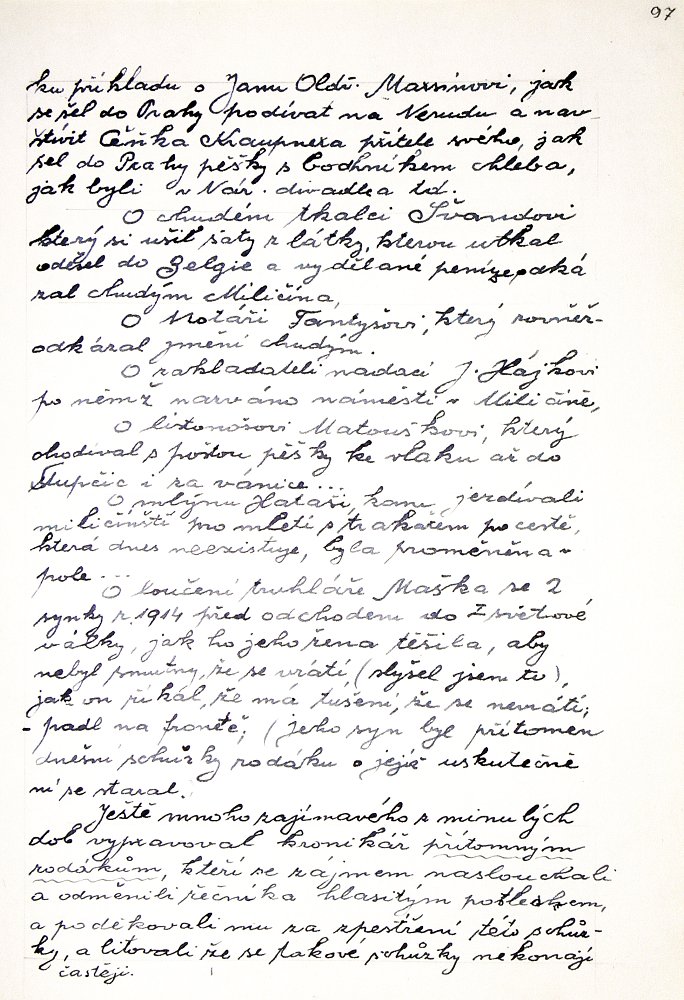 97
ku příkladu o Janu Oldř. Marsínovi, jak
se šel do Prahy podívat na Nerudu a nav-
štívit Čeňka Kraupnera přítele svého, jak
šel do Prahy pěšky s bochníkem chleba,
jak byli v Nár. divadle a td.
O chudém tkalci Švandovi
který si ušil šaty z látky, kterou utkal
odešel do Belgie a vydělané peníze odká
zal chudým Miličína,
O Notáři Tantyšovi, který rovněž-
odkázal jmění chudým.
O zakladateli nadací J. Hájkovi
po němž nazváno náměstí v Miličíně,
O listonošovi Matouškovi, který
chodíval s poštou pěšky ke vlaku až do
Stupčic i za vánice...
O mlýnu Hataši, kam jezdívali
miličínští pro mletí s trakařem po cestě,
která dnes neexistuje, byla proměněna v
pole...
O loučení truhláře Maška se 2
synky r. 1914 před odchodem do I světové
války, jak ho jeho žena těšila, aby
nebyl smutny, že se vrátí, (slyšel jsem to),
jak on říkál, že má tušení, že se nevrátí;
- padl na frontě; (jeho syn byl přítomen
dnešní schůzky rodáku o jejíž uskutečně
ní se staral.
Ještě mnoho zajímavého z minulých
dob vypravoval kronikář přítomným
rodákům, kteří se zájmem naslouchali
a odměnili řečníka hlasitým potleskem,
a poděkovali mu za zpestření této schůz-
ky, a litovali že se takové schůzky nekonají
častěji.